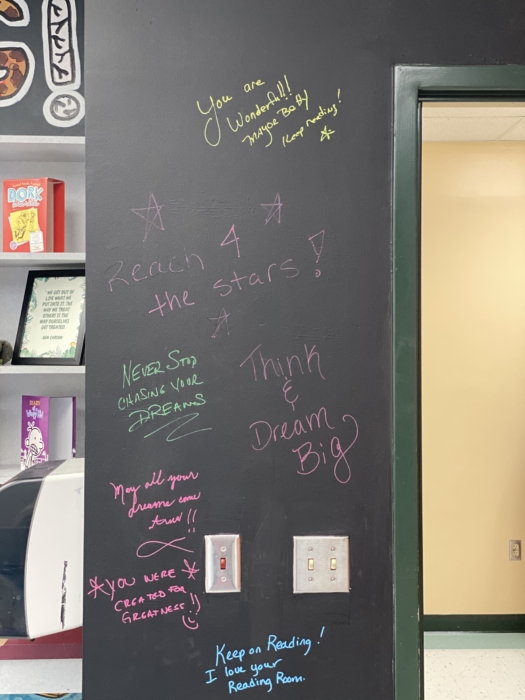 You are
Wonderful!!
Mayor Betty
Keep reading!
Reach 4
the stars!
NEVER STOP
CHASING YOUR
DREAMS
Think
&
Dream
Big
May all your
dreams come
true!!
YOU WERE
CREATED FOR
GREATNESS!!
Keep on Reading!
I love your
Reading Room.
DORK
"WE GET OUT OF
LIFE WHAT WE
PUT INTO IT. THE
WAY WE TREAT
OTHERS IS THE
WAY OURSELVES
GET TREATED.
DIARY